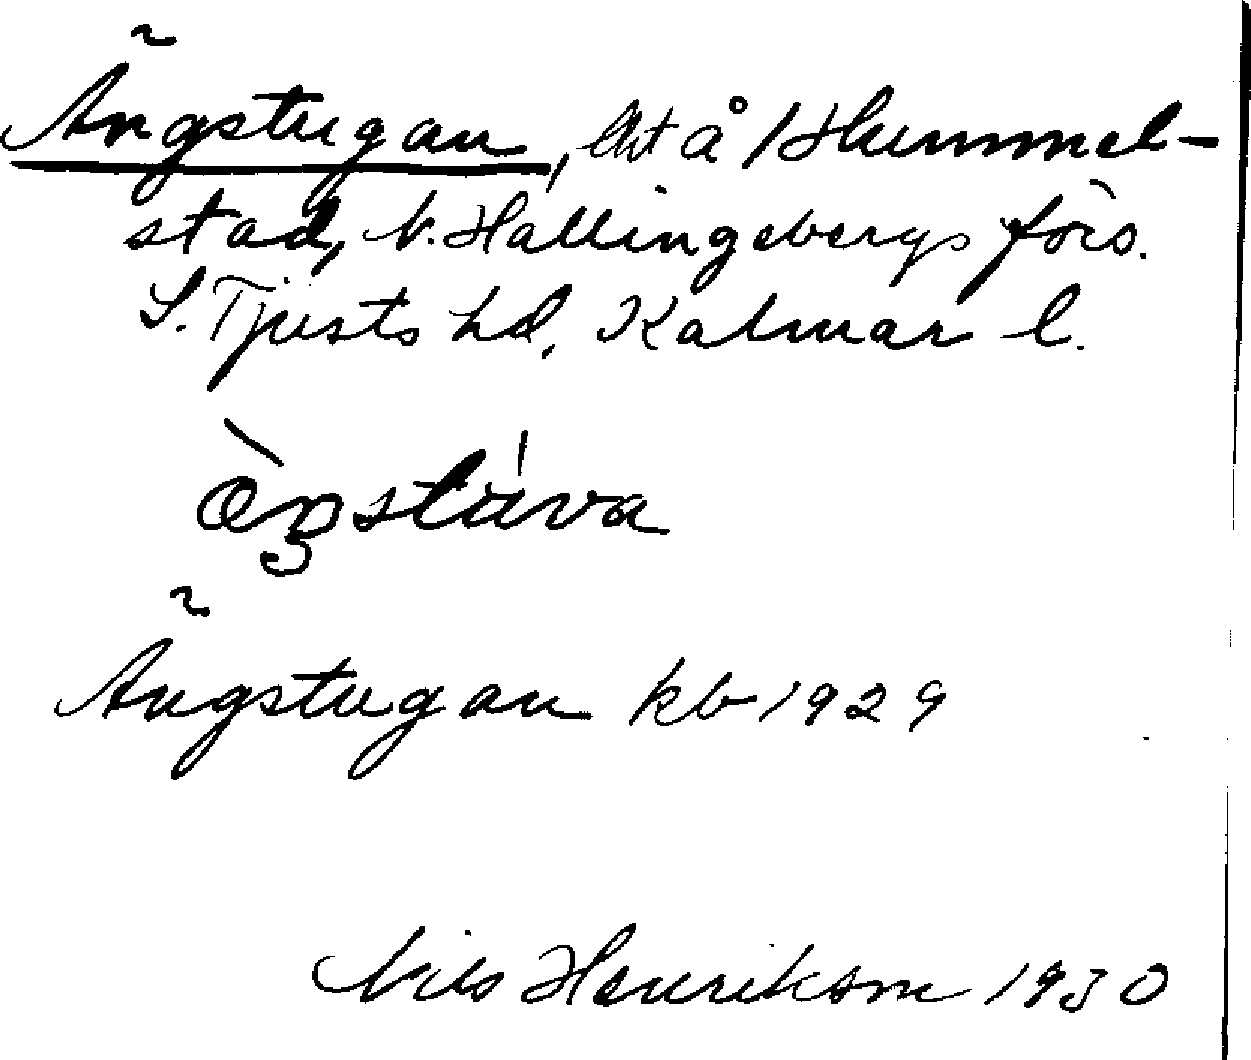 Ängstugan, lht å Hummel-
stad, V. Hallingebergs förs.
S. Tjusts hd, Kalmar l.
èŋstúva
Ängstugan kb 1929
Nils Henrikson 1930